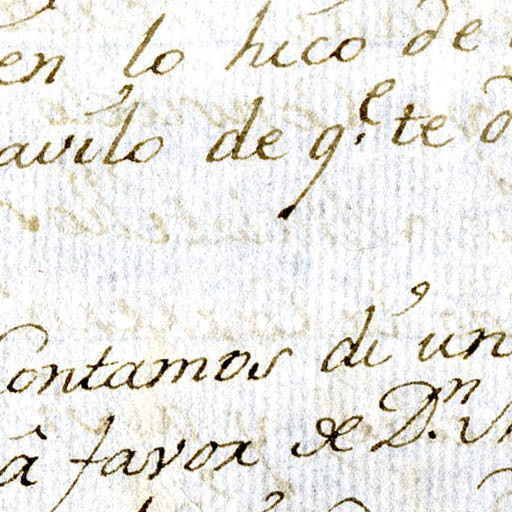 en lo hico de
avilo de q.e te
Contamos di un
â favor de D.n